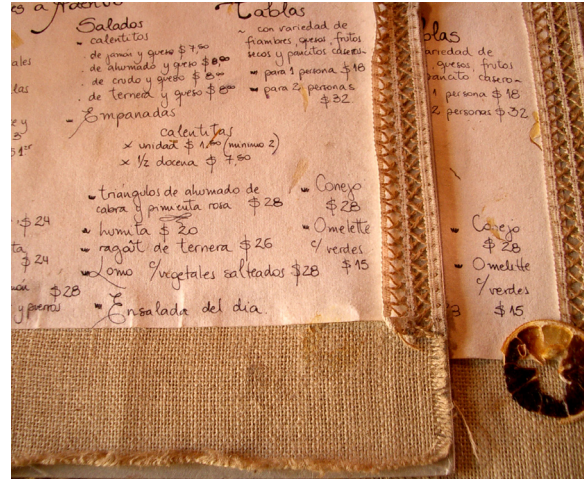 Salados
- calentitos
. de jamón y queso $ 7,50
. de ahumado y queso $ 8,00
. de crudo y queso $ 8,00
. de ternera y queso $ 8,00
- Empanadas
calentitas
x unidad $ 1,50 (mínimo 2)
x 1/2 docena $ 7,50
- triángulos de ahumado de
cabra y pimienta rosa $ 28
- humita $ 20
- ragoût de ternera $ 26
- Lomo c/vegetales salteados $28
- Ensalada del día
Tablas
~ con variedad de
fiambres, quesos, frutos
secos y pancitos caseros
- para 1 persona $ 18
- para 2 personas
$ 32
- Conejo
$ 28
- Omelette
c/ verdes
$ 15
$ 24
$ 24
$ 28
y puerros
blas
ariedad de
quesos, frutos
pancito casero
1 persona $ 18
2 personas $ 32
- Conejo
$ 28
- Omelette
c/ verdes
$ 15